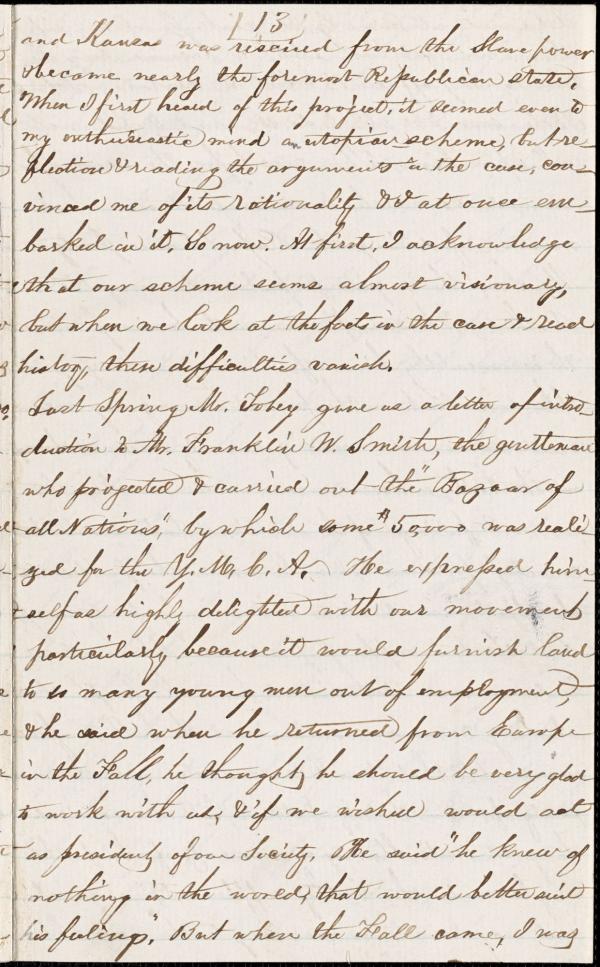 13
and Kansas was rescued from the Slave power
& became nearly the foremost Republican state.
When I first heard of this project, it seemed even to
my enthusiastic mind an utopian scheme, but re-
flection & reading the arguments in the case, con-
vinced me of its rationality & I at once em-
barked in it. So now. At first, I acknowledge
that our scheme seems almost visionary,
but when we look at the facts in the case & read
history, these difficulties vanish.
Last Spring, Mr. Tobey gave us a letter of intro-
duction to Mr. Franklin W. Smith, the gentleman
who projected & carried out the "Bazaar of
all Nations", by which some $50,000 was reali-
zed for the Y. M. C. A. He expressed him-
self as highly delighted with our movement
particularly because it would furnish land
to so many young men out of employment,
& he said when he returned from Europe
in the Fall, he thought he should be very glad
to work with us, & if we wished would act
as president of our Society. He said "he knew of
nothing in the world, that would better suit
his feelings". But when the Fall came, I was